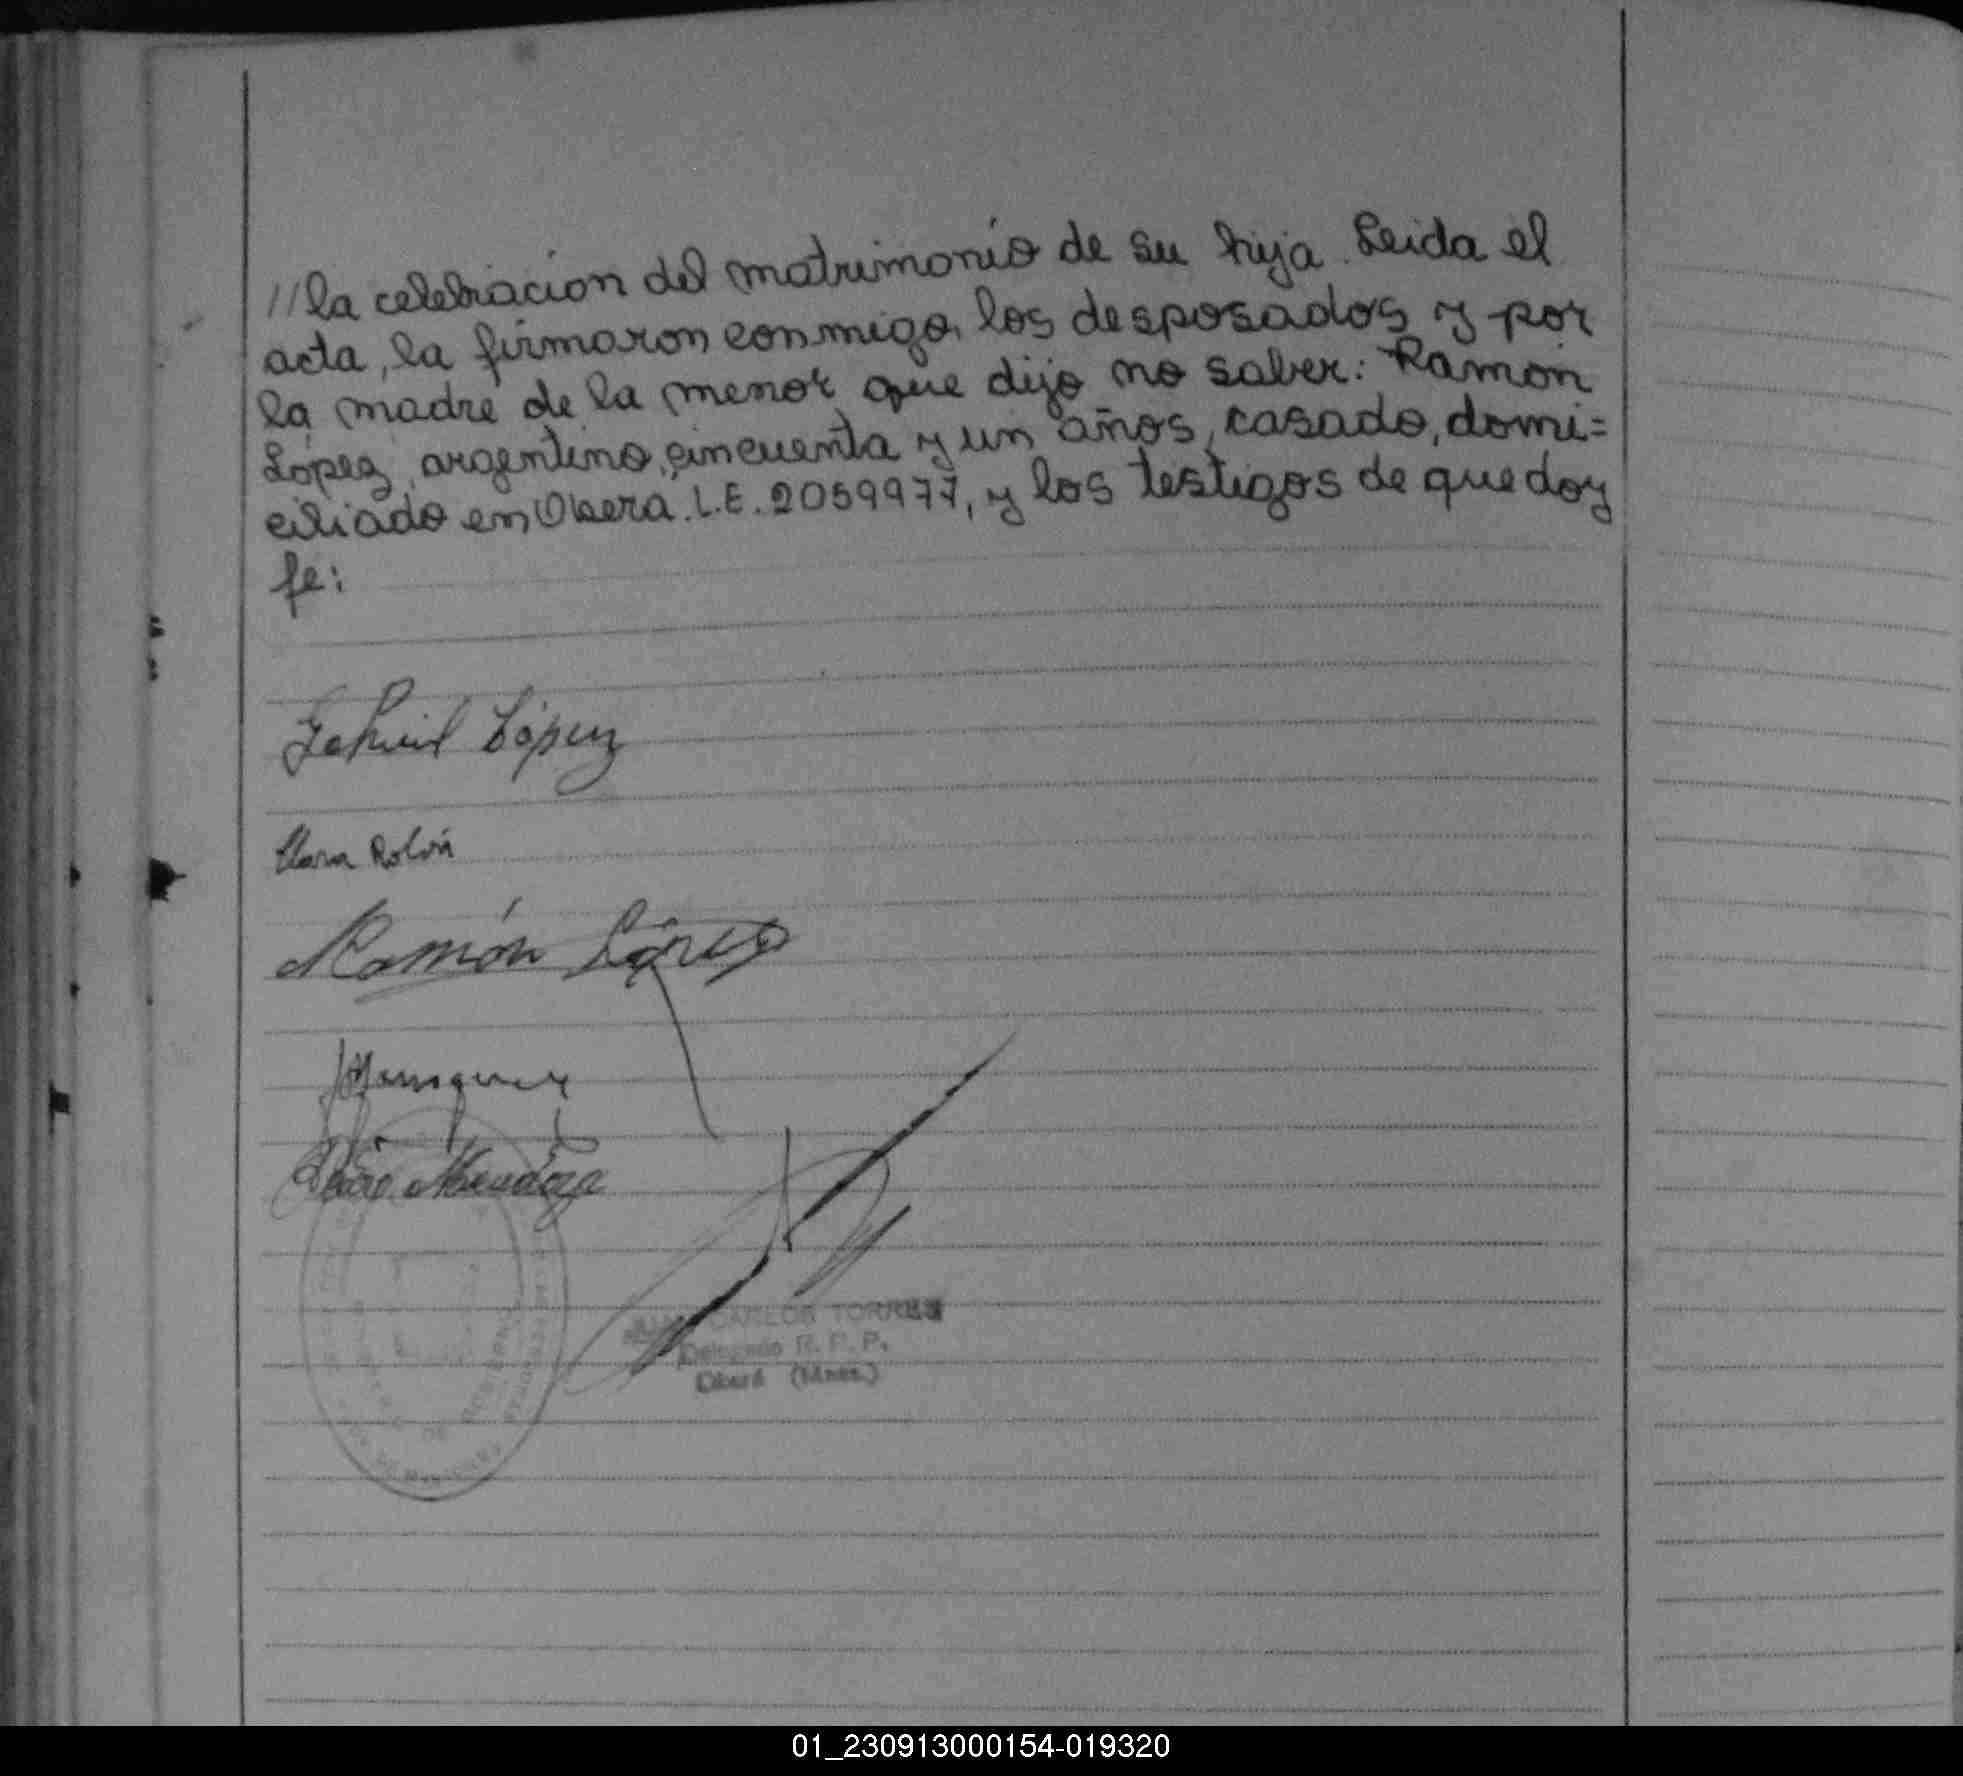 //la celebracion del matrimonio de su hija. Leida el
acta, la firmaron conmigo, los desposados y por
la madre de la menor que dijo no saber: Ramón
López, argentino, cincuenta y un años, casado, domi=
ciliado en Oberá. L.E. 2059977, y los testigos de que doy
fe:
Gabriel López
Clara Rolón
Ramón López
Pedro Mendoza
CARLOS TORRES
Delegado R. P. P.
Oberá (Mnes.)
DE GOBIERNO
01_230913000154-019320